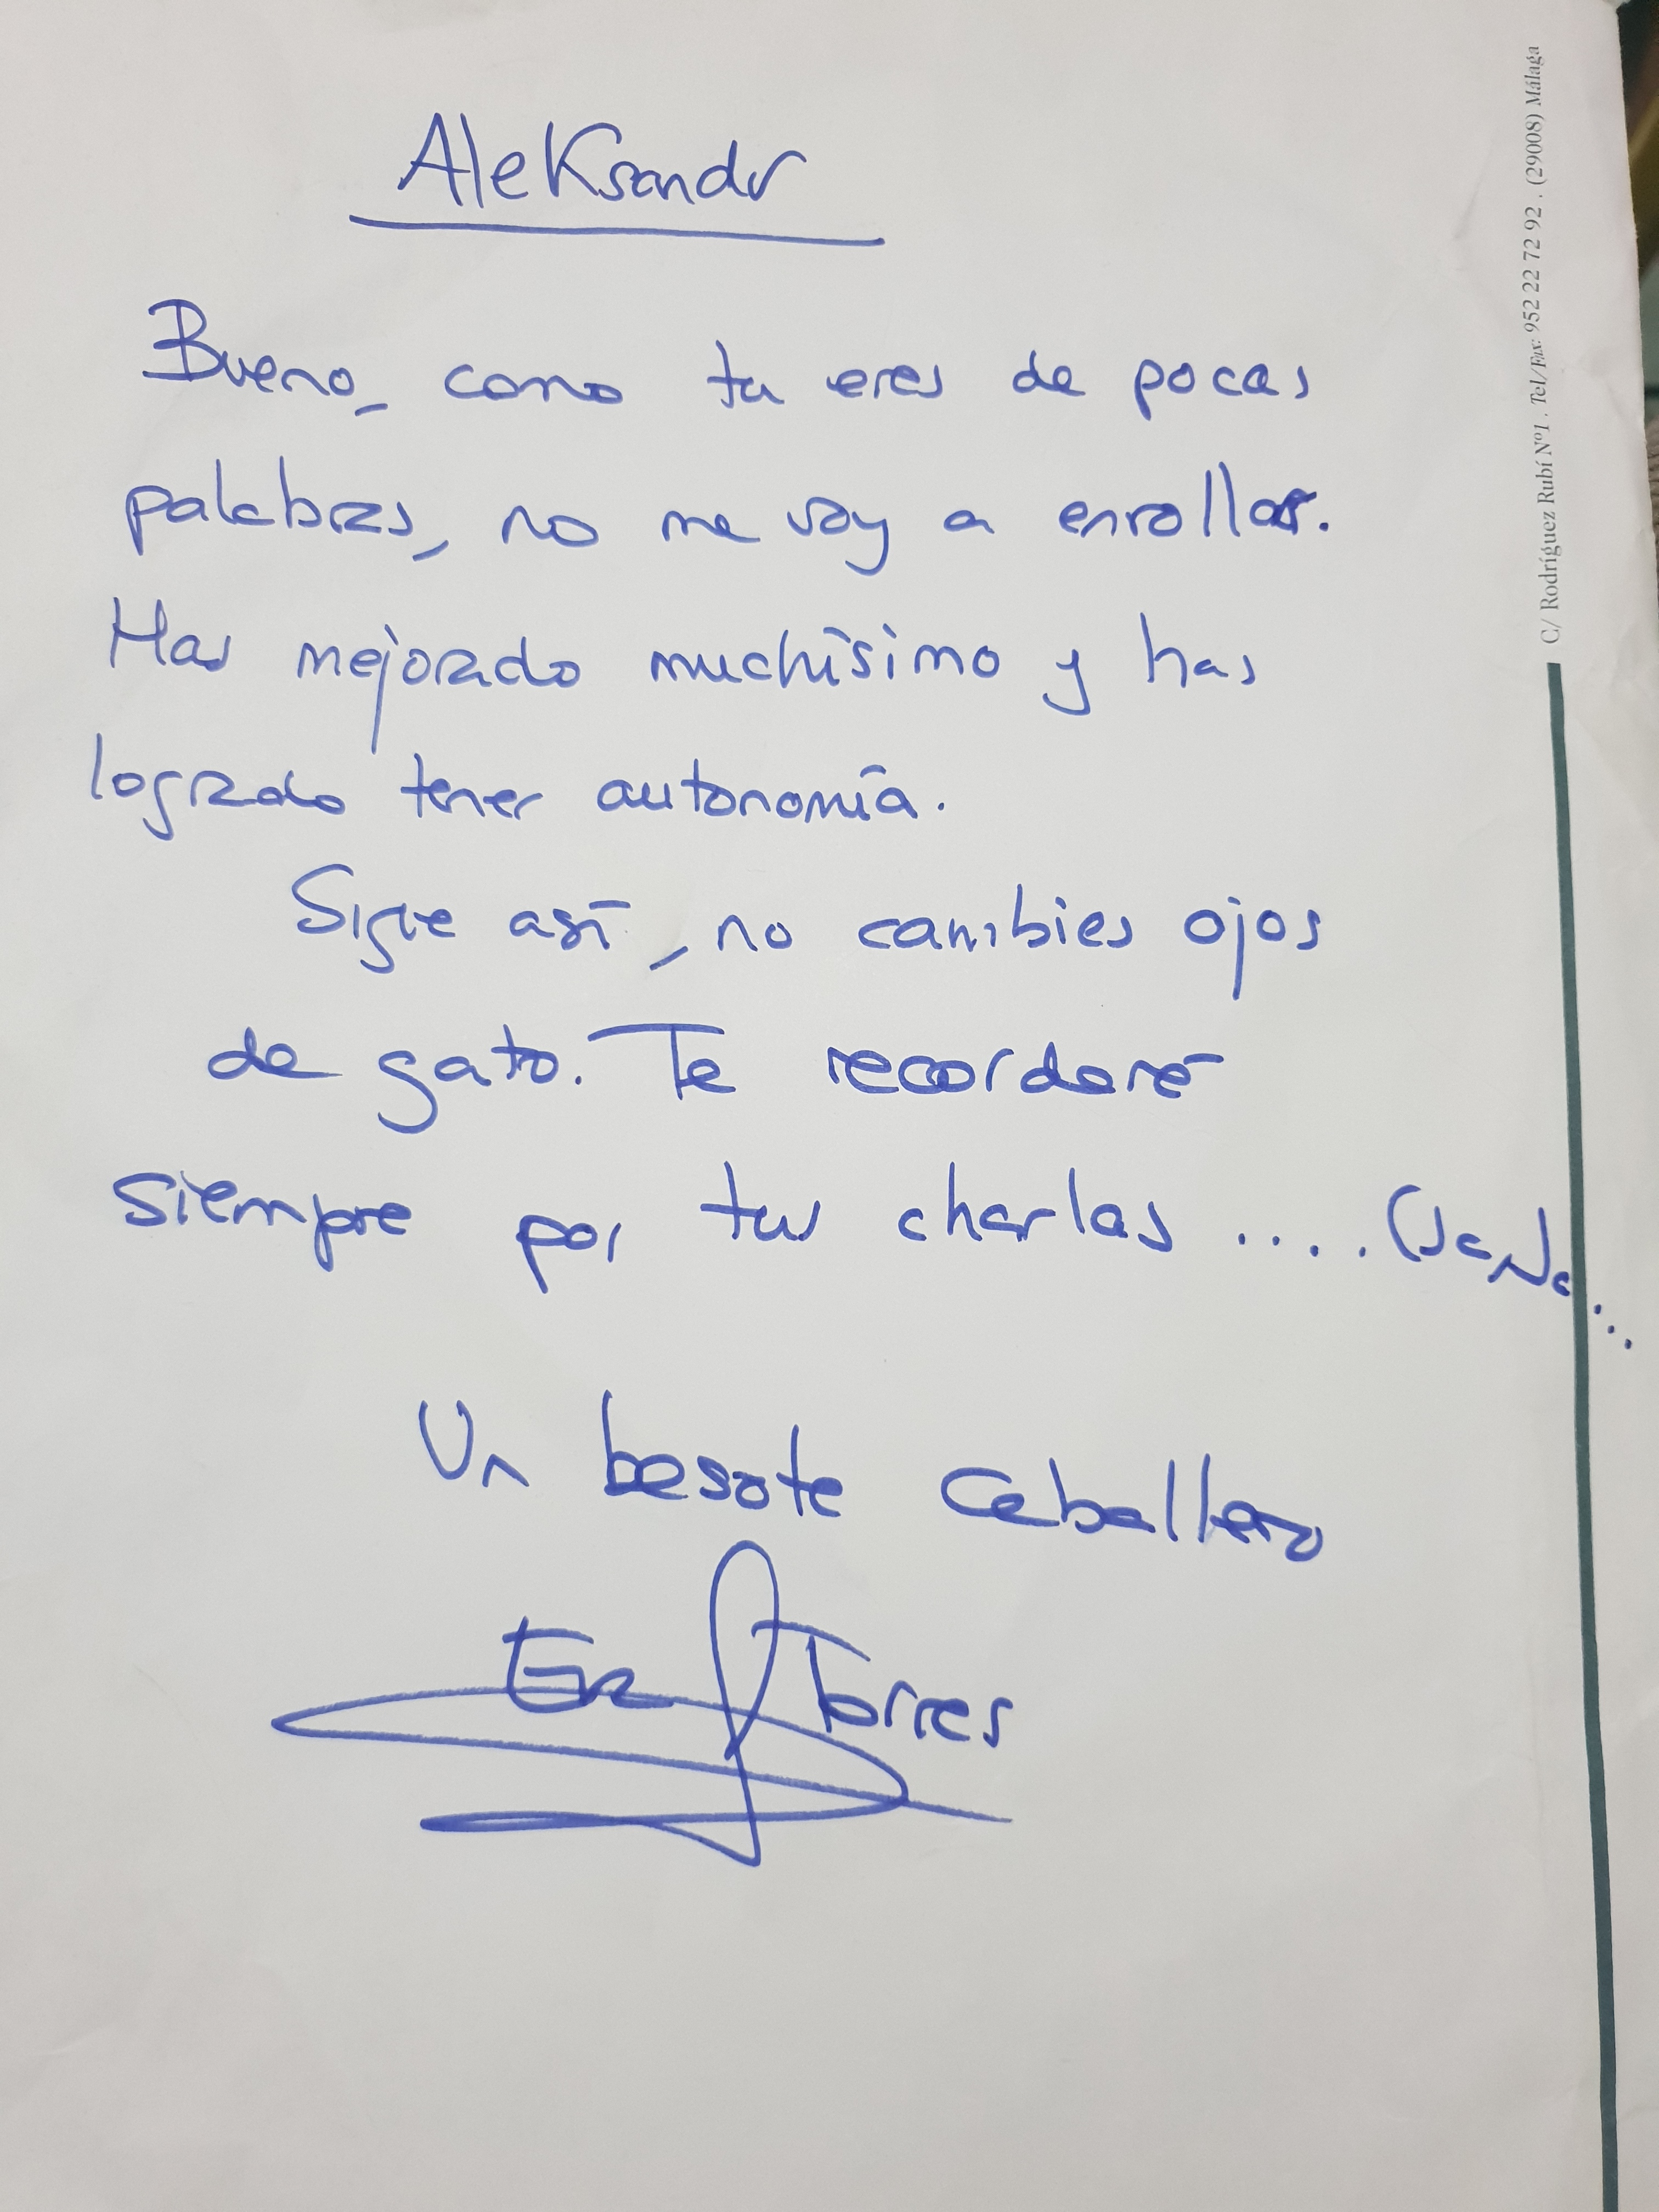 Aleksandr
Bueno, como tu eres de pocas
palabras, no me voy a enrollar.
Has mejorado muchísimo y has
logrado tener autonomía.
Sigue así, no cambies ojos
de gato. Te recordaré
siempre por tus charlas .... (JaJa...
Un besote caballero
Torres
C/ Rodríguez Rubí Nº1 . Tel/Fax: 952 22 72 92 . (29008) Málaga